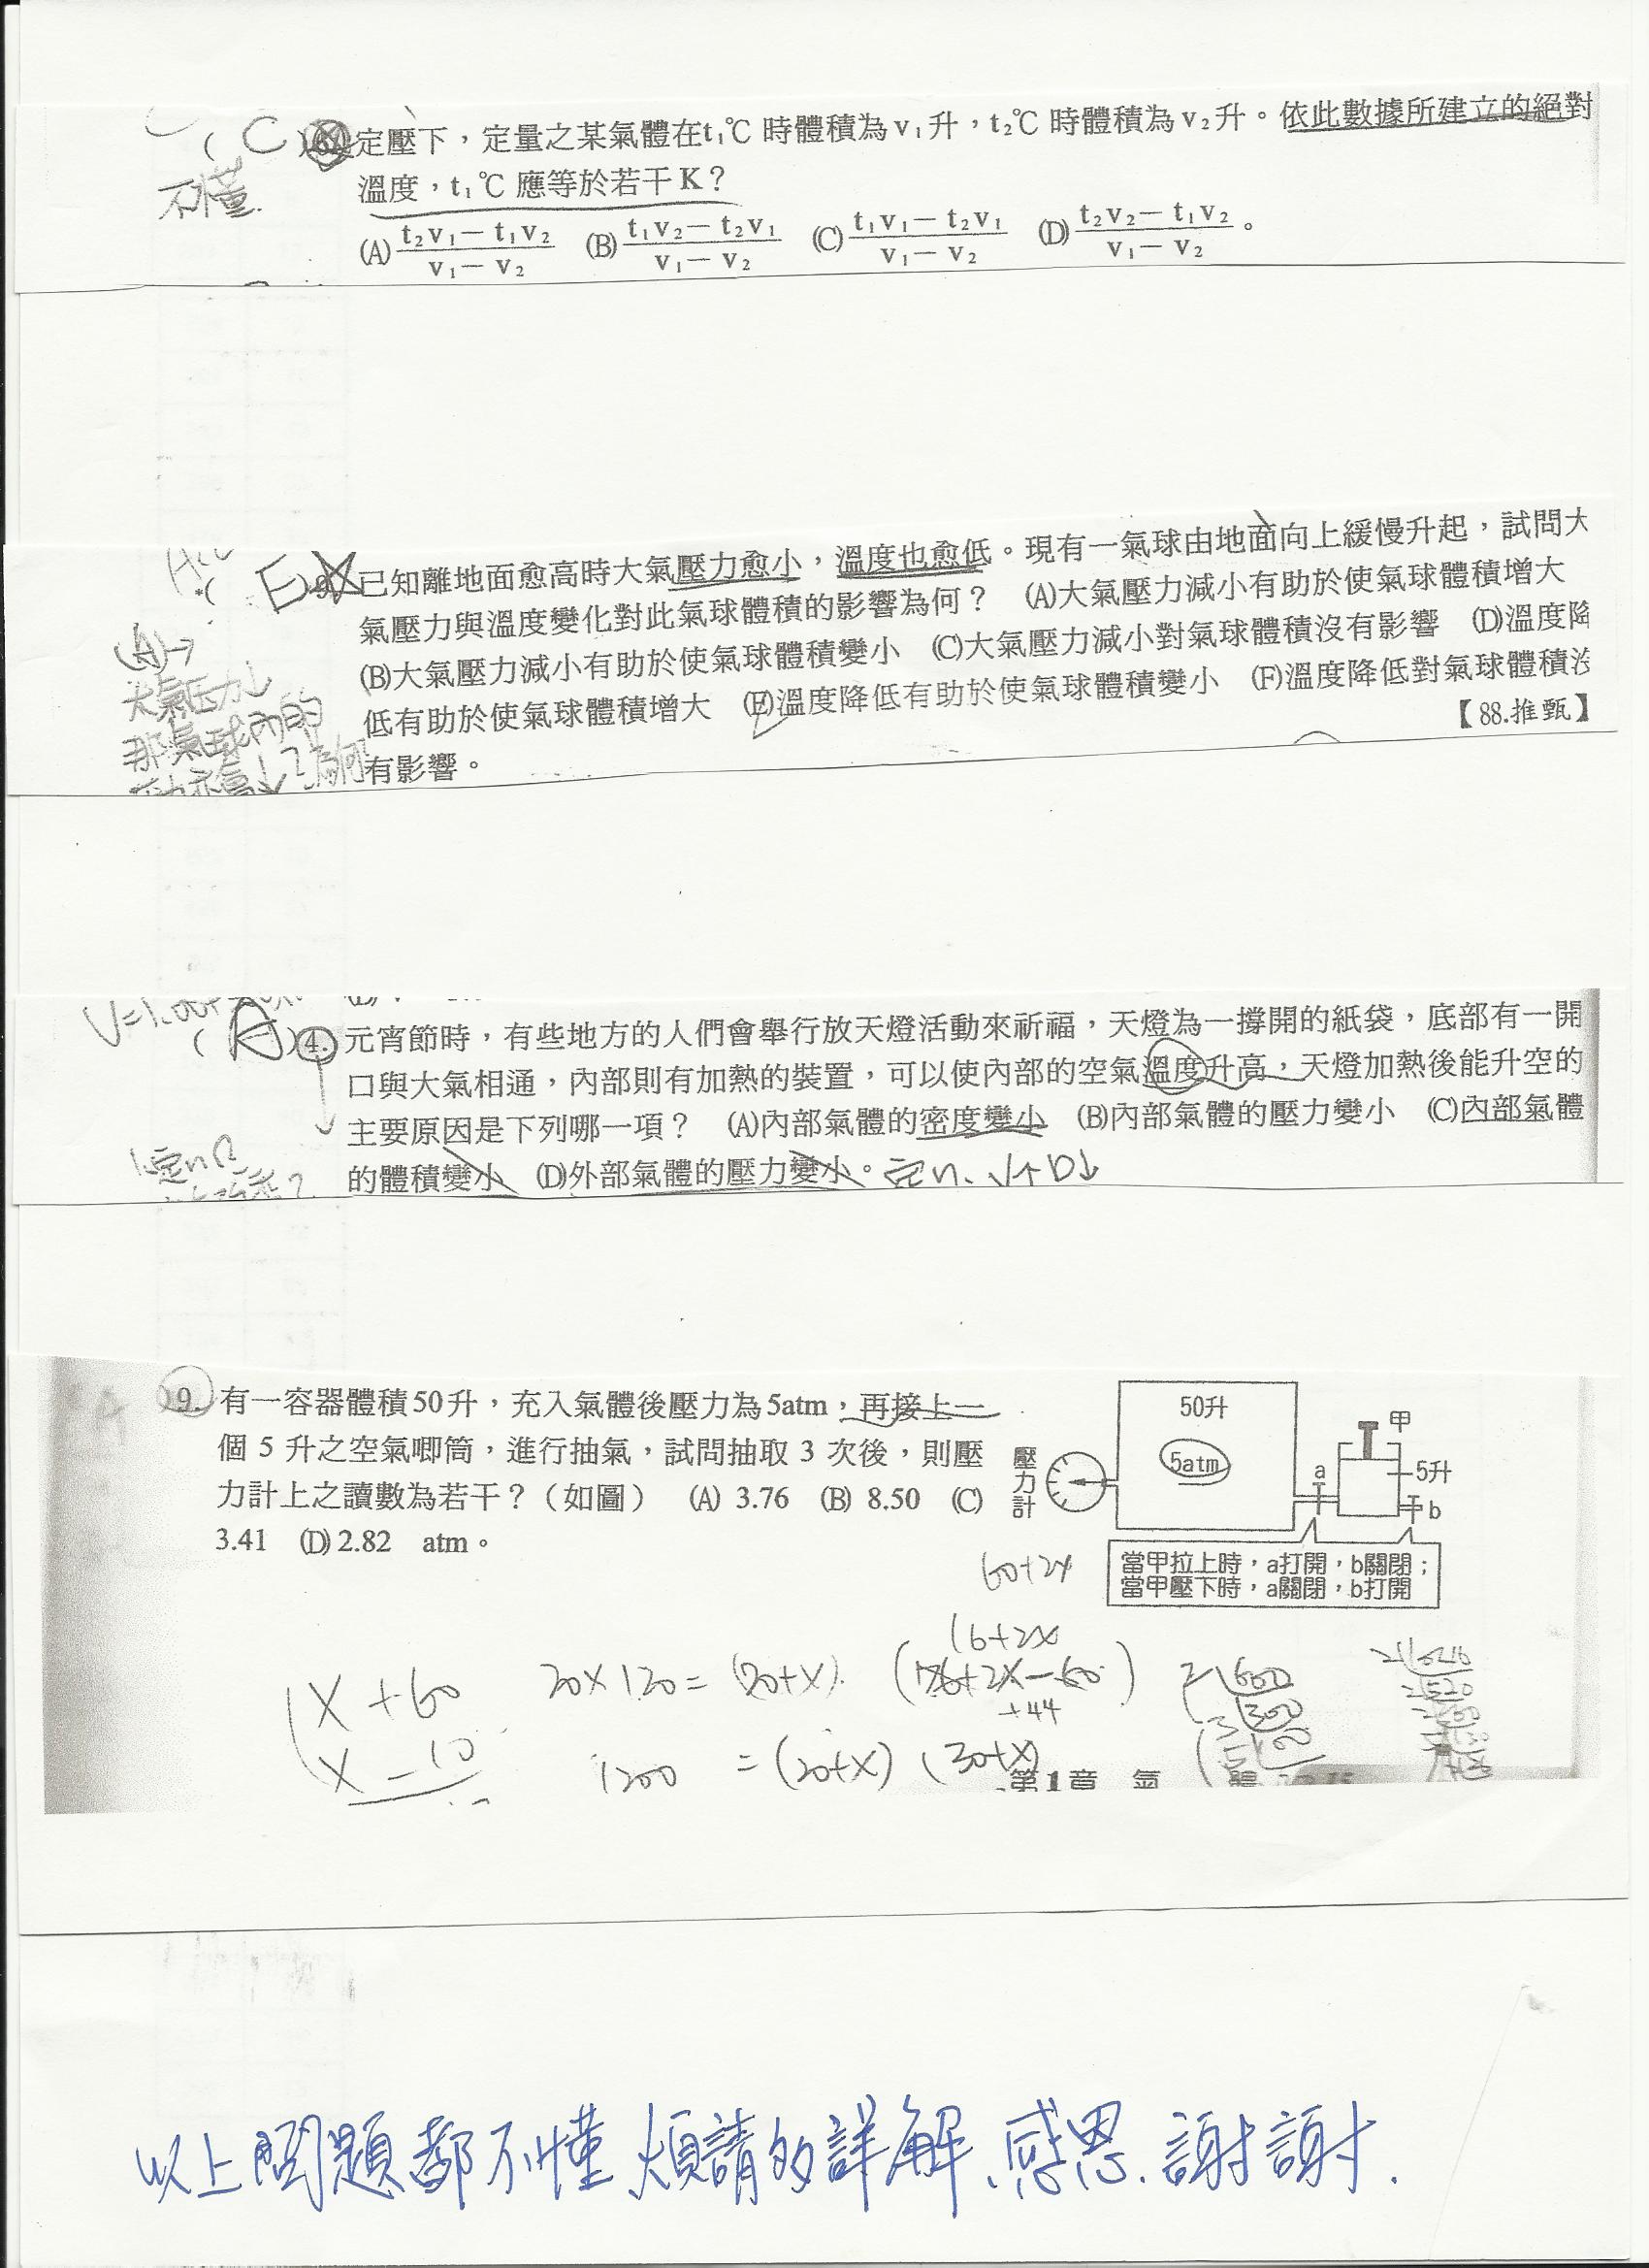 ( C ) 定壓下，定量之某氣體在t₁℃ 時體積為v₁升，t₂℃ 時體積為v₂升。依此數據所建立的絕對
不懂. 溫度，t₁℃ 應等於若干K？
(A) (t₂v₁－t₁v₂)/(v₁－v₂) (B) (t₁v₂－t₂v₁)/(v₁－v₂) (C) (t₁v₁－t₂v₁)/(v₁－v₂) (D) (t₂v₂－t₁v₂)/(v₁－v₂)。
*( E )9. 已知離地面愈高時大氣壓力愈小，溫度也愈低。現有一氣球由地面向上緩慢升起，試問大
氣壓力與溫度變化對此氣球體積的影響為何？ (A)大氣壓力減小有助於使氣球體積增大
(B)大氣壓力減小有助於使氣球體積變小 (C)大氣壓力減小對氣球體積沒有影響 (D)溫度降
低有助於使氣球體積增大 (E)溫度降低有助於使氣球體積變小 (F)溫度降低對氣球體積沒
有影響。 【88.推甄】
(A)→
大氣压力↓
那氣球內的
( A )4. 元宵節時，有些地方的人們會舉行放天燈活動來祈福，天燈為一撐開的紙袋，底部有一開
口與大氣相通，內部則有加熱的裝置，可以使內部的空氣溫度升高，天燈加熱後能升空的
主要原因是下列哪一項？ (A)內部氣體的密度變小 (B)內部氣體的壓力變小 (C)內部氣體
的體積變小 (D)外部氣體的壓力變小。定n. V↑D↓
9. 有一容器體積50升，充入氣體後壓力為5atm，再接上一
個 5 升之空氣唧筒，進行抽氣，試問抽取 3 次後，則壓
力計上之讀數為若干？（如圖） (A) 3.76 (B) 8.50 (C)
3.41 (D) 2.82 atm。
壓力計
50升
5atm
a
甲
5升
b
當甲拉上時，a打開，b關閉；
當甲壓下時，a關閉，b打開
60+2x
16+2x
x+60
20×120=(20+x).
+44
x-10
1200 =(20+x)(30+x)
第1章 氣 體
以上問題都不懂 煩請您詳解、感恩. 謝謝.